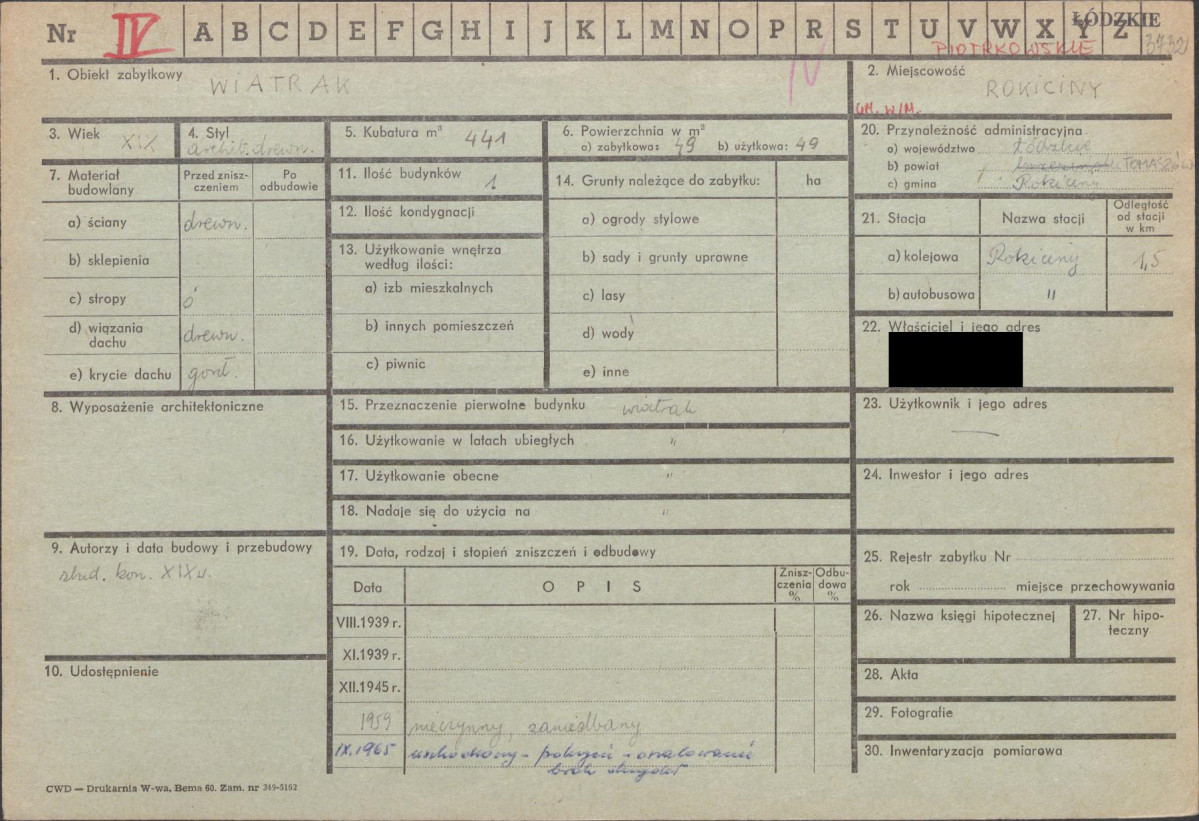 Nr IV A B C D E F G H I J K L M N O P R S T U V W X Y Z ŁÓDZKIE
PIOTRKOWSKIE 3732
1. Obiekt zabytkowy WIATRAK IV
2. Miejscowość
ROKICINY
GM. W/M.
3. Wiek XIX
4. Styl
archit. drewn.
5. Kubatura m³ 441
6. Powierzchnia w m²
a) zabytkowa: 49 b) użytkowa: 49
20. Przynależność administracyjna
a) województwo Łódzkie
b) powiat TOMASZÓW
c) gmina Rokiciny
7. Materiał budowlany
Przed zniszczeniem
Po odbudowie
a) ściany drewn.
b) sklepienia
c) stropy
d) wiązania dachu drewn.
e) krycie dachu gont.
11. Ilość budynków 1
12. Ilość kondygnacji
13. Użytkowanie wnętrza
według ilości:
a) izb mieszkalnych
b) innych pomieszczeń
c) piwnic
14. Grunty należące do zabytku: ha
a) ogrody stylowe
b) sady i grunty uprawne
c) lasy
d) wody
e) inne
21. Stacja Nazwa stacji Odległość od stacji w km
a) kolejowa Rokiciny 1,5
b) autobusowa "
22. Właściciel i jego adres
8. Wyposażenie architektoniczne
15. Przeznaczenie pierwotne budynku wiatrak
16. Użytkowanie w latach ubiegłych "
17. Użytkowanie obecne "
18. Nadaje się do użycia na "
23. Użytkownik i jego adres
—
24. Inwestor i jego adres
9. Autorzy i data budowy i przebudowy
zbud. kon. XIX w.
19. Data, rodzaj i stopień zniszczeń i odbudowy
Data OPIS Zniszczenia % Odbudowa %
VIII.1939 r.
XI.1939 r.
XII.1945 r.
1959 nieczynny, zaniedbany
IX.1965 uszkodzony - pokrycie - oszalowanie
brak skrzydeł
25. Rejestr zabytku Nr
rok miejsce przechowywania
26. Nazwa księgi hipotecznej
27. Nr hipoteczny
10. Udostępnienie
28. Akta
29. Fotografie
30. Inwentaryzacja pomiarowa
CWD — Drukarnia W-wa, Bema 60. Zam. nr 349-5162